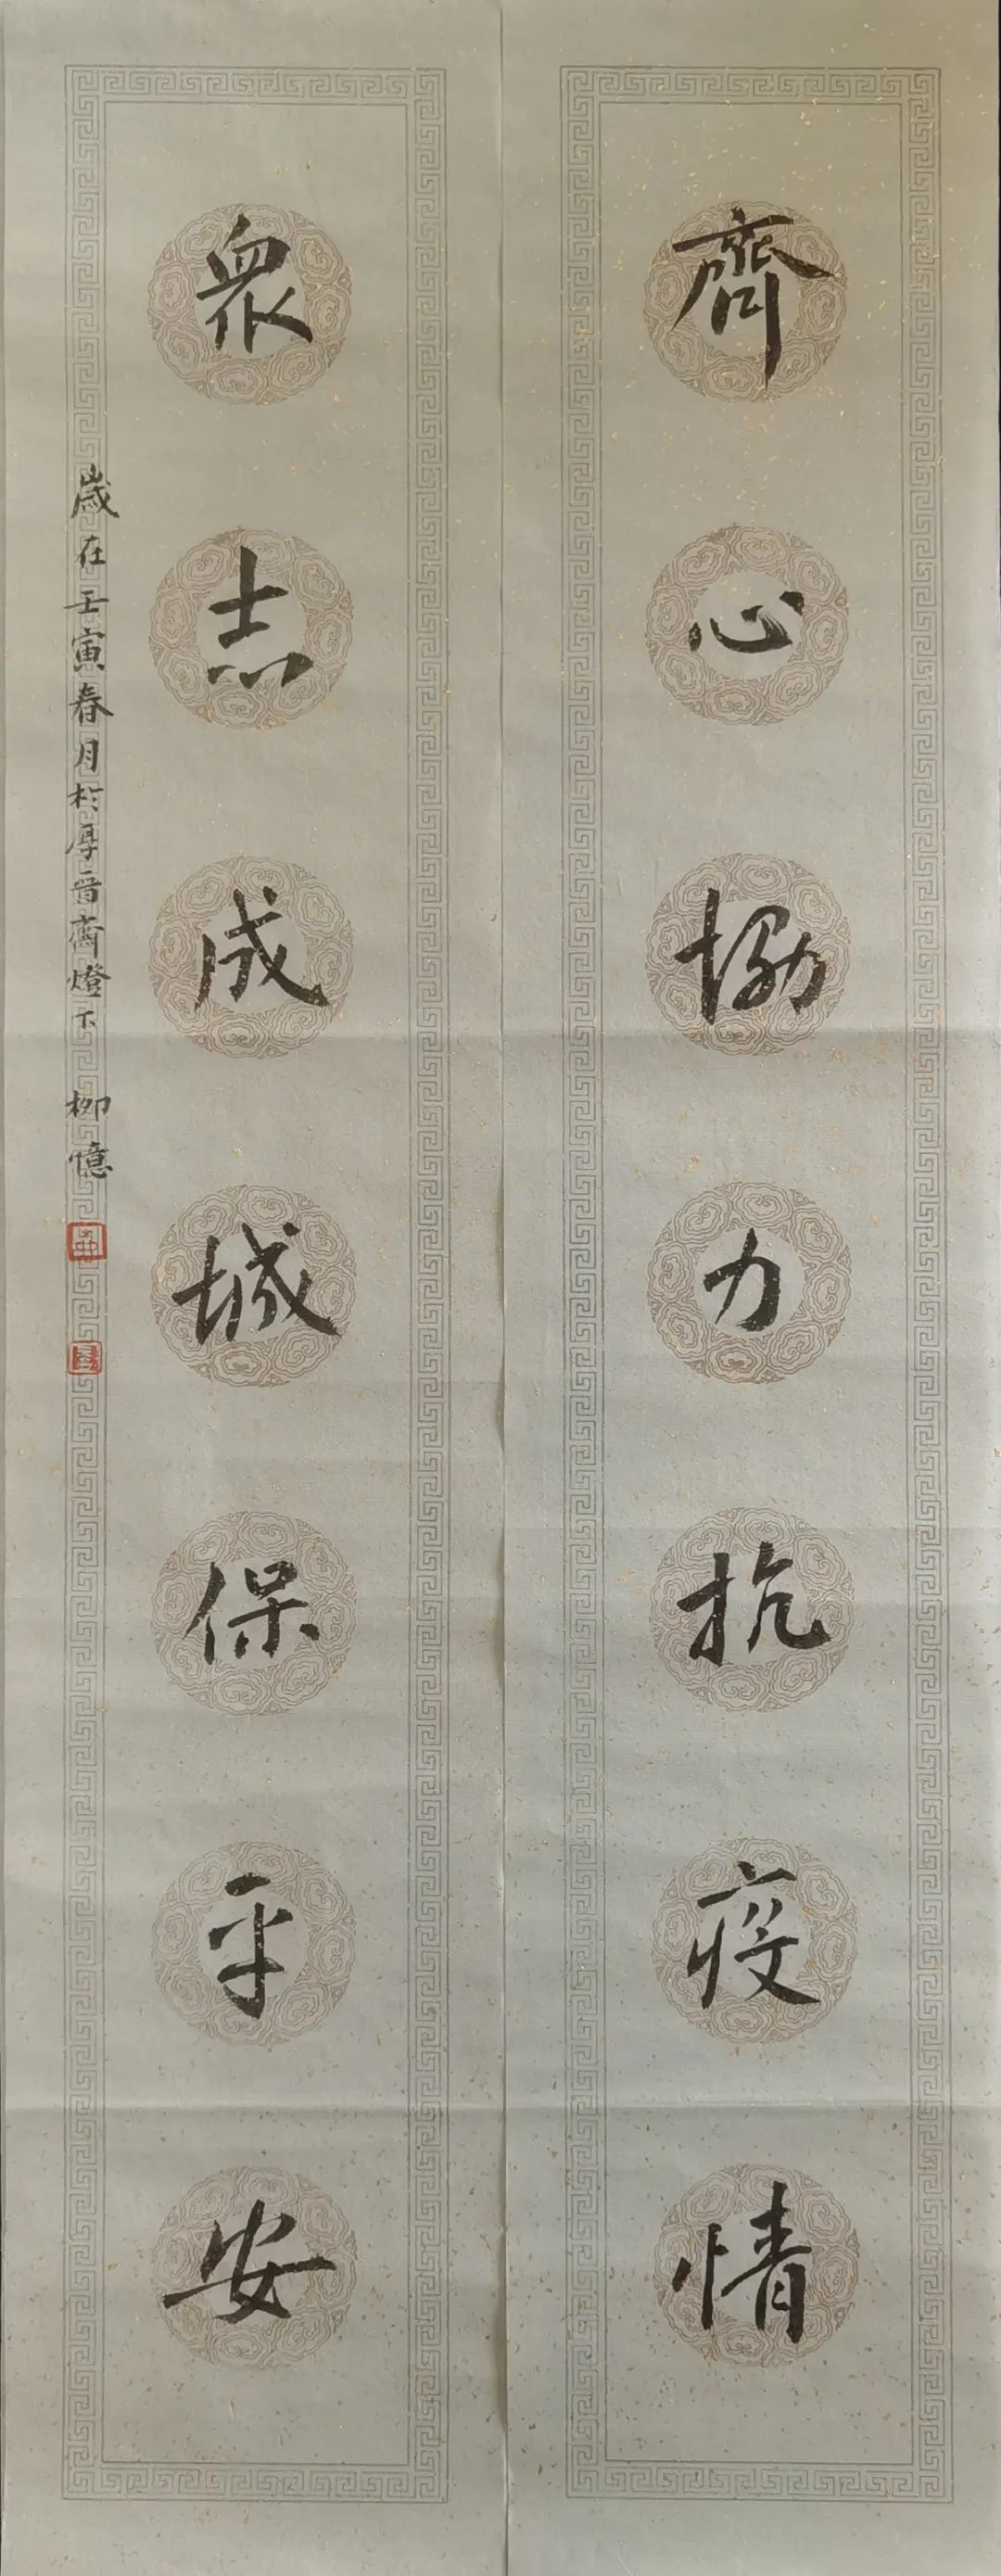 齊心協力抗疫情
衆志成城保平安
歲在壬寅春月於厚晉齋燈下 柳憶